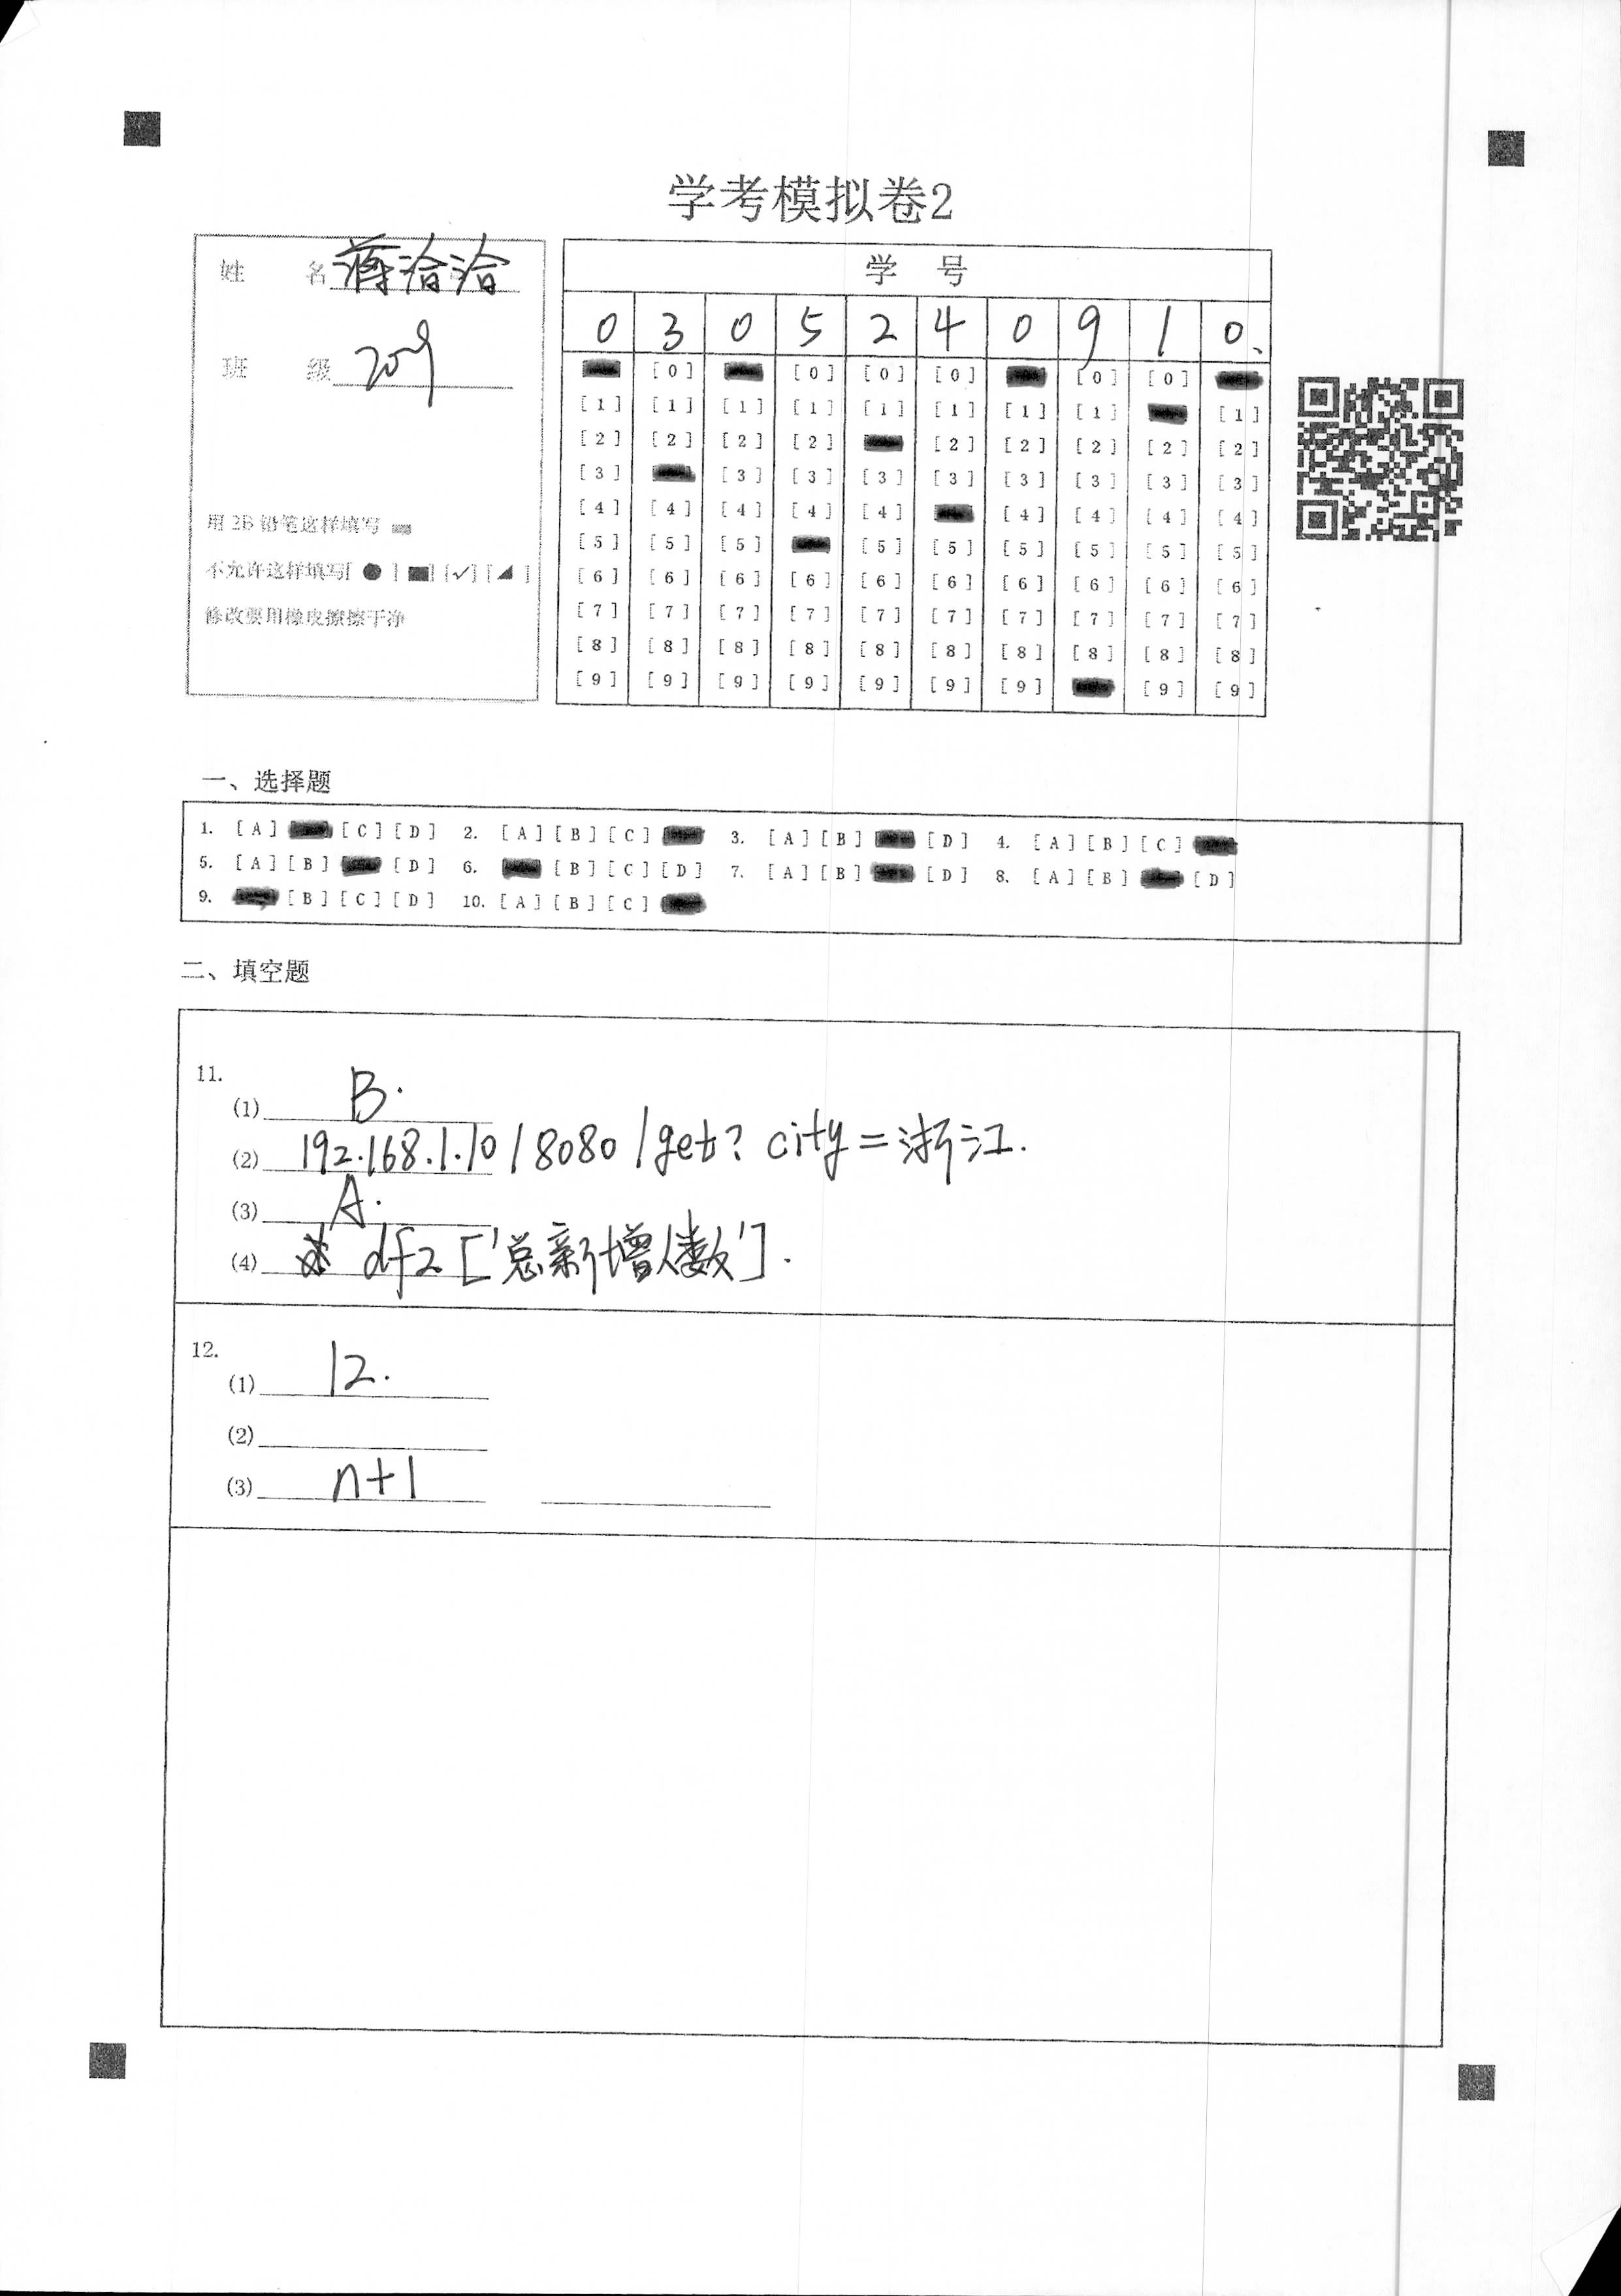 学考模拟卷2
姓 名 蒋洽洽
班 级 209
用 2B 铅笔这样填写
不允许这样填写[ ● ] [■] [✓] [◢ ]
修改要用橡皮擦擦干净
学 号
0 3 0 5 2 4 0 9 1 0.
[0] [0] [0] [0] [0] [0]
[1] [1] [1] [1] [1] [1] [1] [1] [1]
[2] [2] [2] [2] [2] [2] [2] [2] [2]
[3] [3] [3] [3] [3] [3] [3] [3] [3]
[4] [4] [4] [4] [4] [4] [4] [4] [4]
[5] [5] [5] [5] [5] [5] [5] [5] [5]
[6] [6] [6] [6] [6] [6] [6] [6] [6] [6]
[7] [7] [7] [7] [7] [7] [7] [7] [7] [7]
[8] [8] [8] [8] [8] [8] [8] [8] [8] [8]
[9] [9] [9] [9] [9] [9] [9] [9] [9]
一、选择题
1. [A] [C] [D] 2. [A] [B] [C] 3. [A] [B] [D] 4. [A] [B] [C]
5. [A] [B] [D] 6. [B] [C] [D] 7. [A] [B] [D] 8. [A] [B] [D]
9. [B] [C] [D] 10. [A] [B] [C]
二、填空题
11.
(1) B.
(2) 192.168.1.10 / 8080 / get? city = 浙江.
(3) A.
(4) df2 ['总新增人数'].
12.
(1) 12.
(2)
(3) n+1